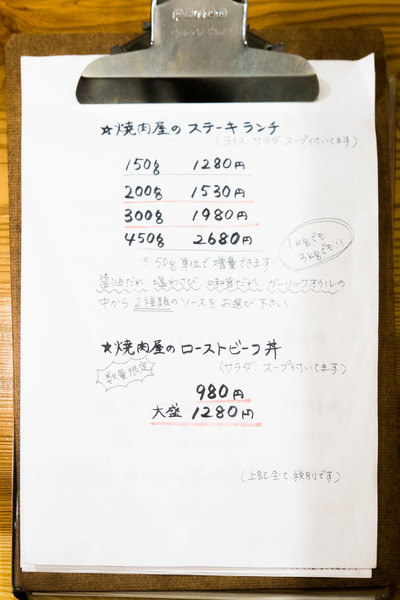 ☆焼肉屋の ステーキランチ
(ライス サラダ スープ付いてます)
150g 1280円
200g 1530円
300g 1980円
450g 2680円
※50g単位で増量できます
1kgでも
3kgでも!!
醤油だれ、塩わさび、味噌だれ、ガーリックオイルの
中から2種類のソースをお選び下さい
☆焼肉屋の ローストビーフ丼
数量限定
(サラダ スープ付いてます)
980円
大盛 1280円
(上記全て税別です)